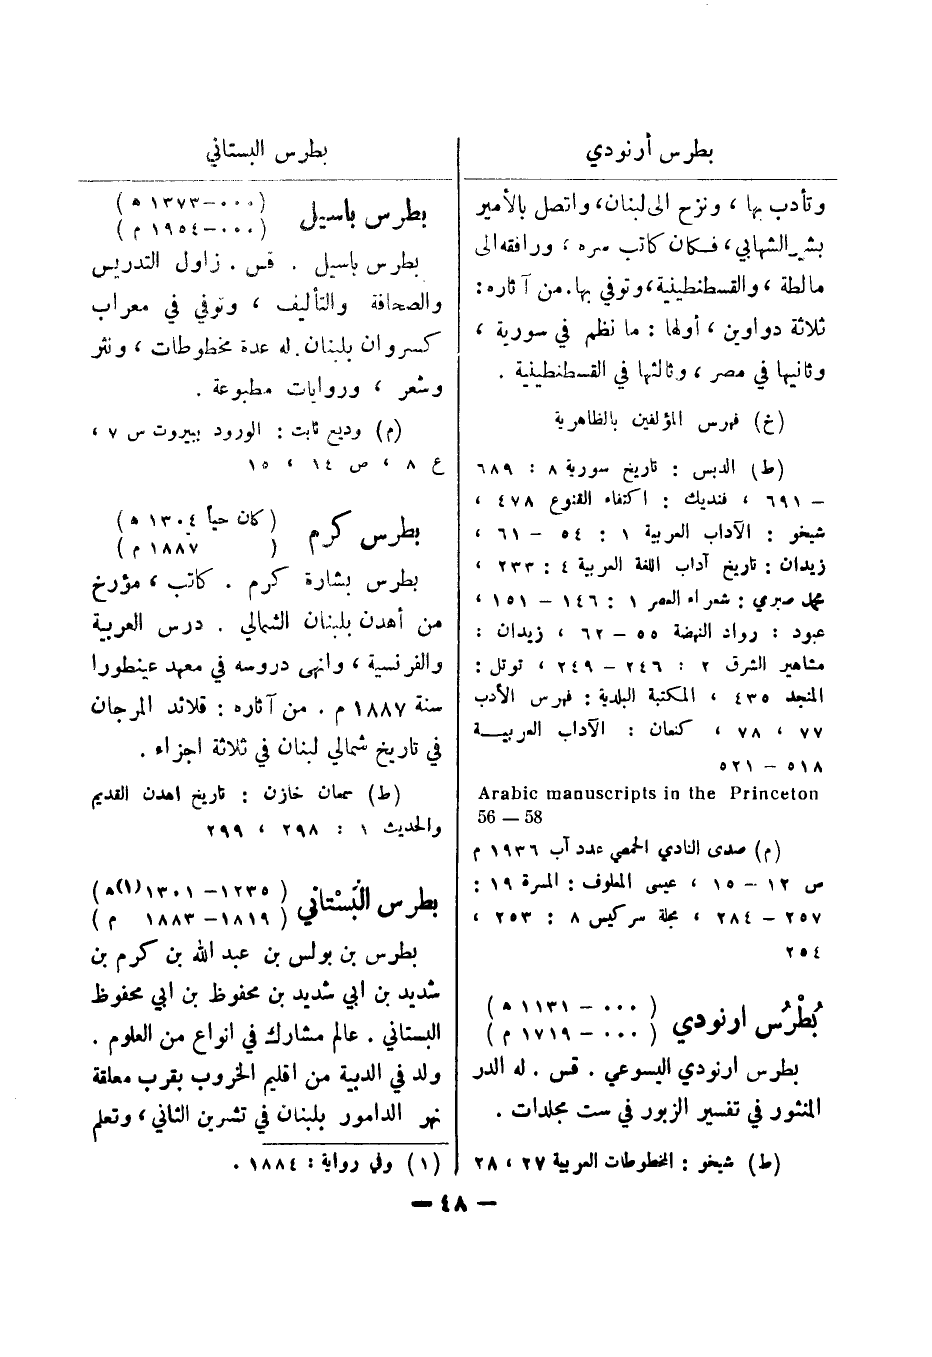 بطرس أرنودي
وتأدب بها ، ونزح الى لبنان، واتصل بالأمير
بشير الشهابي ، فكان كاتب سره ، ورافقه الى
مالطة ، والقسطنطينية، وتوفي بها. من آثاره:
ثلاثة دواوين ، أولها : ما نظم في سورية ،
وثانيها في مصر ، وثالثها في القسطنطينية .
(خ) فهرس المؤلفين بالظاهرية
(ط) الدبس : تاريخ سورية ٨ : ٦٨٩
– ٦٩١ ، فنديك : اكتفاء القنوع ٤٧٨ ،
شيخو : الآداب العربية ١ : ٥٤ – ٦١ ،
زيدان : تاريخ آداب اللغة العربية ٤ : ٢٣٣ ،
محمد صبري : شعراء العصر ١ : ١٤٦ – ١٥١ ،
عبود : رواد النهضة ٥٥ – ٦٢ ، زيدان :
مشاهير الشرق ٢ : ٢٤٦ – ٢٤٩ ، توتل :
المنجد ٤٣٥ ، المكتبة البلدية : فهرس الأدب
٧٧ ، ٧٨ ، كنعان : الآداب العربيـــة
٥١٨ – ٥٢١
Arabic manuscripts in the Princeton
56 — 58
(م) صدى النادي الحمصي عدد آب ١٩٣٦ م
ص ١٢ – ١٥ ، عيسى المعلوف : المسرة ١٩ :
٢٥٧ – ٢٨٤ ، مجلة سركيس ٨ : ٢٥٣ ،
٢٥٤
بُطْرُس ارنودي ( ٠٠٠ – ١١٣١ هـ )
( ٠٠٠ – ١٧١٩ م )
بطرس ارنودي اليسوعي . قس . له الدر
المنثور في تفسير الزبور في ست مجلدات .
(ط) شيخو : المخطوطات العربية ٢٧ ، ٢٨
بطرس البستاني
بطرس باسيل ( ٠٠٠–١٣٧٣ هـ )
( ٠٠٠–١٩٥٤ م )
بطرس باسيل . قس . زاول التدريس
والصحافة والتأليف ، وتوفي في معراب
كسروان بلبنان. له عدة مخطوطات ، ونثر
وشعر ، وروايات مطبوعة .
(م) وديع ثابت : الورود ببيروت س ٧ ،
ع ٨ ، ص ١٤ ، ١٥
بطرس كرم (كان حياً ١٣٠٤ هـ )
( ١٨٨٧ م )
بطرس بشارة كرم . كاتب ، مؤرخ
من أهدن بلبنان الشمالي . درس العربية
والفرنسية ، وانهى دروسه في معهد عينطورا
سنة ١٨٨٧ م . من آثاره : قلائد المرجان
في تاريخ شمالي لبنان في ثلاثة اجزاء .
(ط) سمعان خازن : تاريخ اهدن القديم
والحديث ١ : ٢٩٨ ، ٢٩٩
بطرس البُسْتاني ( ١٢٣٥ – ١٣٠١(١)هـ )
( ١٨١٩ – ١٨٨٣ م )
بطرس بن بولس بن عبد الله بن كرم بن
شديد بن ابي شديد بن محفوظ بن ابي محفوظ
البستاني . عالم مشارك في انواع من العلوم .
ولد في الدبية من اقليم الخروب بقرب معلقة
نهر الدامور بلبنان في تشرين الثاني ، وتعلم
(١) وفي رواية : ١٨٨٤ .
– ٤٨ –